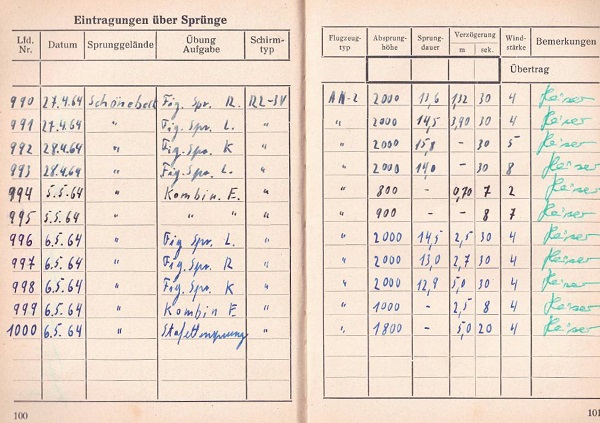 Eintragungen über Sprünge
Lfd. Nr. Datum Sprunggelände Übung Aufgabe Schirmtyp
990 27.4.64 Schönebeck Fig. Spr. R. RL-3V
991 27.4.64 " Fig. Spr. L. "
992 28.4.64 " Fig. Spr. K "
993 28.4.64 " Fig. Spr. L. "
994 5.5.64 " Kombin. E. "
995 5.5.64 " " " "
996 6.5.64 " Fig. Spr. L. "
997 6.5.64 " Fig. Spr. R "
998 6.5.64 " Fig. Spr. K "
999 6.5.64 " Kombin E. "
1000 6.5.64 " Stafettsprung "
100
Flugzeugtyp Absprunghöhe Sprungdauer Verzögerung m sek. Windstärke Bemerkungen
Übertrag
AN-2 2000 13,6 132 30 4
" 2000 14,5 3,90 30 4
" 2000 15,8 - 30 5
" 2000 14,0 - 30 8
" 800 - 0,70 7 2
" 900 - - 8 7
" 2000 14,5 2,5 30 4
" 2000 13,0 2,7 30 4
" 2000 12,9 5,0 30 4
" 1000 - 2,5 8 4
" 1800 - 5,0 20 4
101